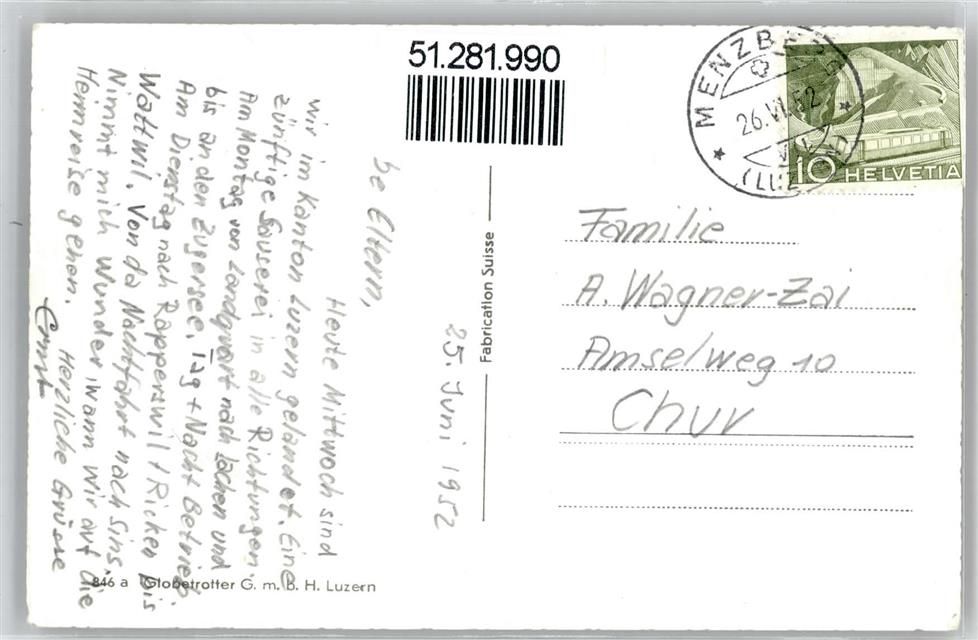 51.281.990
MENZBERG
26.VI.52
(LUZERN)
10 HELVETIA
25. Juni 1952
be Eltern,
Heute Mittwoch sind
wir im Kanton Luzern gelandet. Eine
zünftige Sauserei in alle Richtungen.
Am Montag von Landquart nach Lachen und
bis an den Zugersee. Tag + Nacht Betrieb.
Am Dienstag nach Rapperswil + Ricken bis
Wattwil. Von da Nachtfahrt nach Sins.
Nimmt mich Wunder wann wir auf die
Heimreise gehen. Herzliche Grüsse
Ernst
Fabrication Suisse
Familie
A. Wagner-Zai
Amselweg 10
Chur
846 a Globetrotter G. m. b. H. Luzern